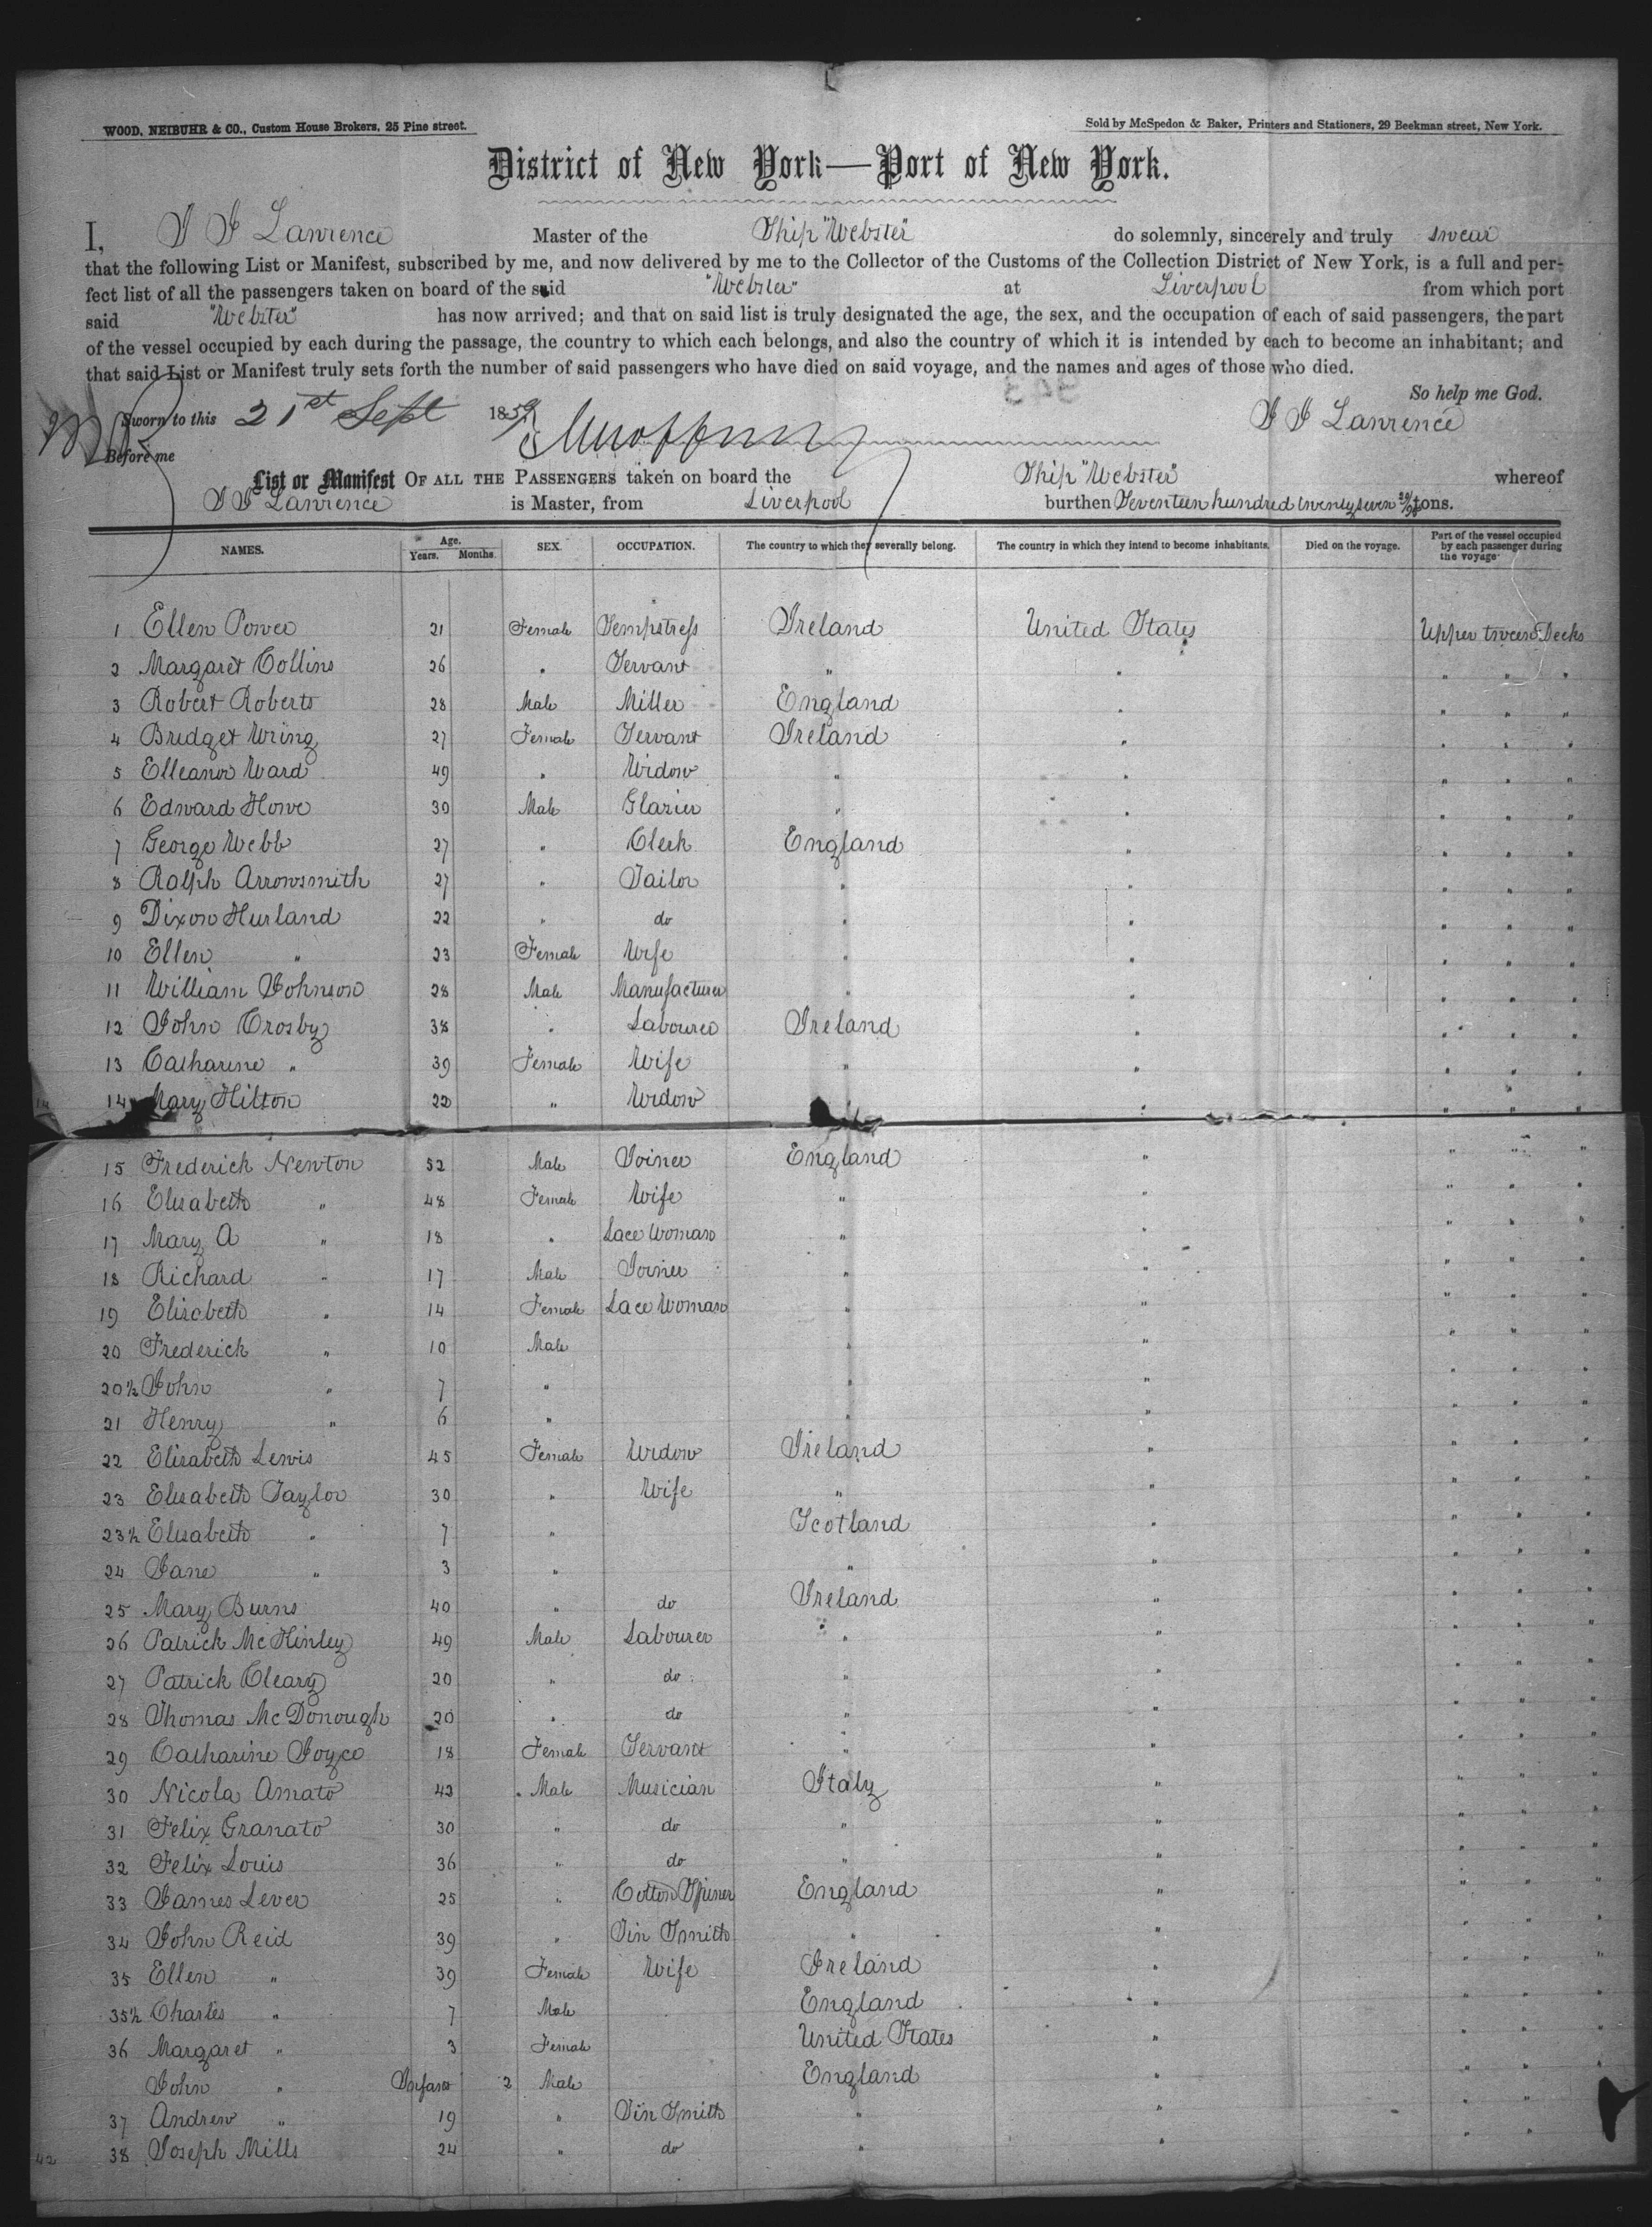 WOOD, NEIBUHR & CO., Custom House Brokers, 25 Pine street.
Sold by McSpedon & Baker, Printers and Stationers, 29 Beekman street, New York.
District of New York—Port of New York.
I, J J Lawrence Master of the Ship "Webster" do solemnly, sincerely and truly swear
that the following List or Manifest, subscribed by me, and now delivered by me to the Collector of the Customs of the Collection District of New York, is a full and per-
fect list of all the passengers taken on board of the said "Webster" at Liverpool from which port
said "Webster" has now arrived; and that on said list is truly designated the age, the sex, and the occupation of each of said passengers, the part
of the vessel occupied by each during the passage, the country to which each belongs, and also the country of which it is intended by each to become an inhabitant; and
that said List or Manifest truly sets forth the number of said passengers who have died on said voyage, and the names and ages of those who died.
So help me God.
Sworn to this 21st Sept 1859 J J Lawrence
Before me
List or Manifest OF ALL THE PASSENGERS taken on board the Ship "Webster" whereof
J J Lawrence is Master, from Liverpool burthen Seventeen hundred twenty seven tons.
NAMES. Age. Years. Months. SEX. OCCUPATION. The country to which they severally belong. The country in which they intend to become inhabitants. Died on the voyage. Part of the vessel occupied by each passenger during the voyage
1 Ellen Power 21 Female Sempstress Ireland United States Upper tween Decks
2 Margaret Collins 26 " Servant " " " " "
3 Robert Roberts 28 Male Miller England " " " "
4 Bridget Wring 27 Female Servant Ireland " " " "
5 Elleanor Ward 49 " Widow " " " " "
6 Edward Howe 30 Male Glazier " " " " "
7 George Webb 27 " Clerk England " " " "
8 Ralph Arrowsmith 27 " Tailor " " " " "
9 Dixon Hurland 22 " do " " " " "
10 Ellen " 23 Female Wife " " " " "
11 William Johnson 28 Male Manufacturer " " " " "
12 John Crosby 38 " Labourer Ireland " " " "
13 Catharine " 39 Female Wife " " " " "
14 Mary Hilton 22 " Widow " " " "
15 Frederick Newton 52 Male Joiner England " " " "
16 Elisabeth " 48 Female Wife " " " " "
17 Mary A " 18 " Lace Woman " " " " "
18 Richard " 17 Male Joiner " " " " "
19 Elisabeth " 14 Female Lace Woman " " " " "
20 Frederick " 10 Male " " " " "
20½ John " 7 " " " " " "
21 Henry " 6 " " " " " "
22 Elisabeth Lewis 45 Female Widow Ireland " " " "
23 Elisabeth Taylor 30 " Wife " " " " "
23½ Elisabeth " 7 " Scotland " " " "
24 Jane " 3 " " " " " "
25 Mary Burns 40 " do Ireland " " " "
26 Patrick McKinley 49 Male Labourer " " " " "
27 Patrick Cleary 20 " do " " " " "
28 Thomas McDonough 20 " do " " " " "
29 Catharine Joyce 18 Female Servant " " " " "
30 Nicola Amato 42 Male Musician Italy " " " "
31 Felix Granato 30 " do " " " " "
32 Felix Louis 36 " do " " " " "
33 James Lever 25 " Cotton Spiner England " " " "
34 John Reid 39 " Tin Smith " " " " "
35 Ellen " 39 Female Wife Ireland " " " "
35½ Charles " 7 Male England " " " "
36 Margaret " 3 Female United States " " " "
John " Infant 2 Male England " " " "
37 Andrew " 19 " Tin Smith " " " "
38 Joseph Mills 24 " do " " " "
42